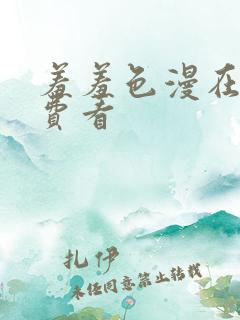 羞羞色漫在
费看
扎伊
未经同意禁止转载